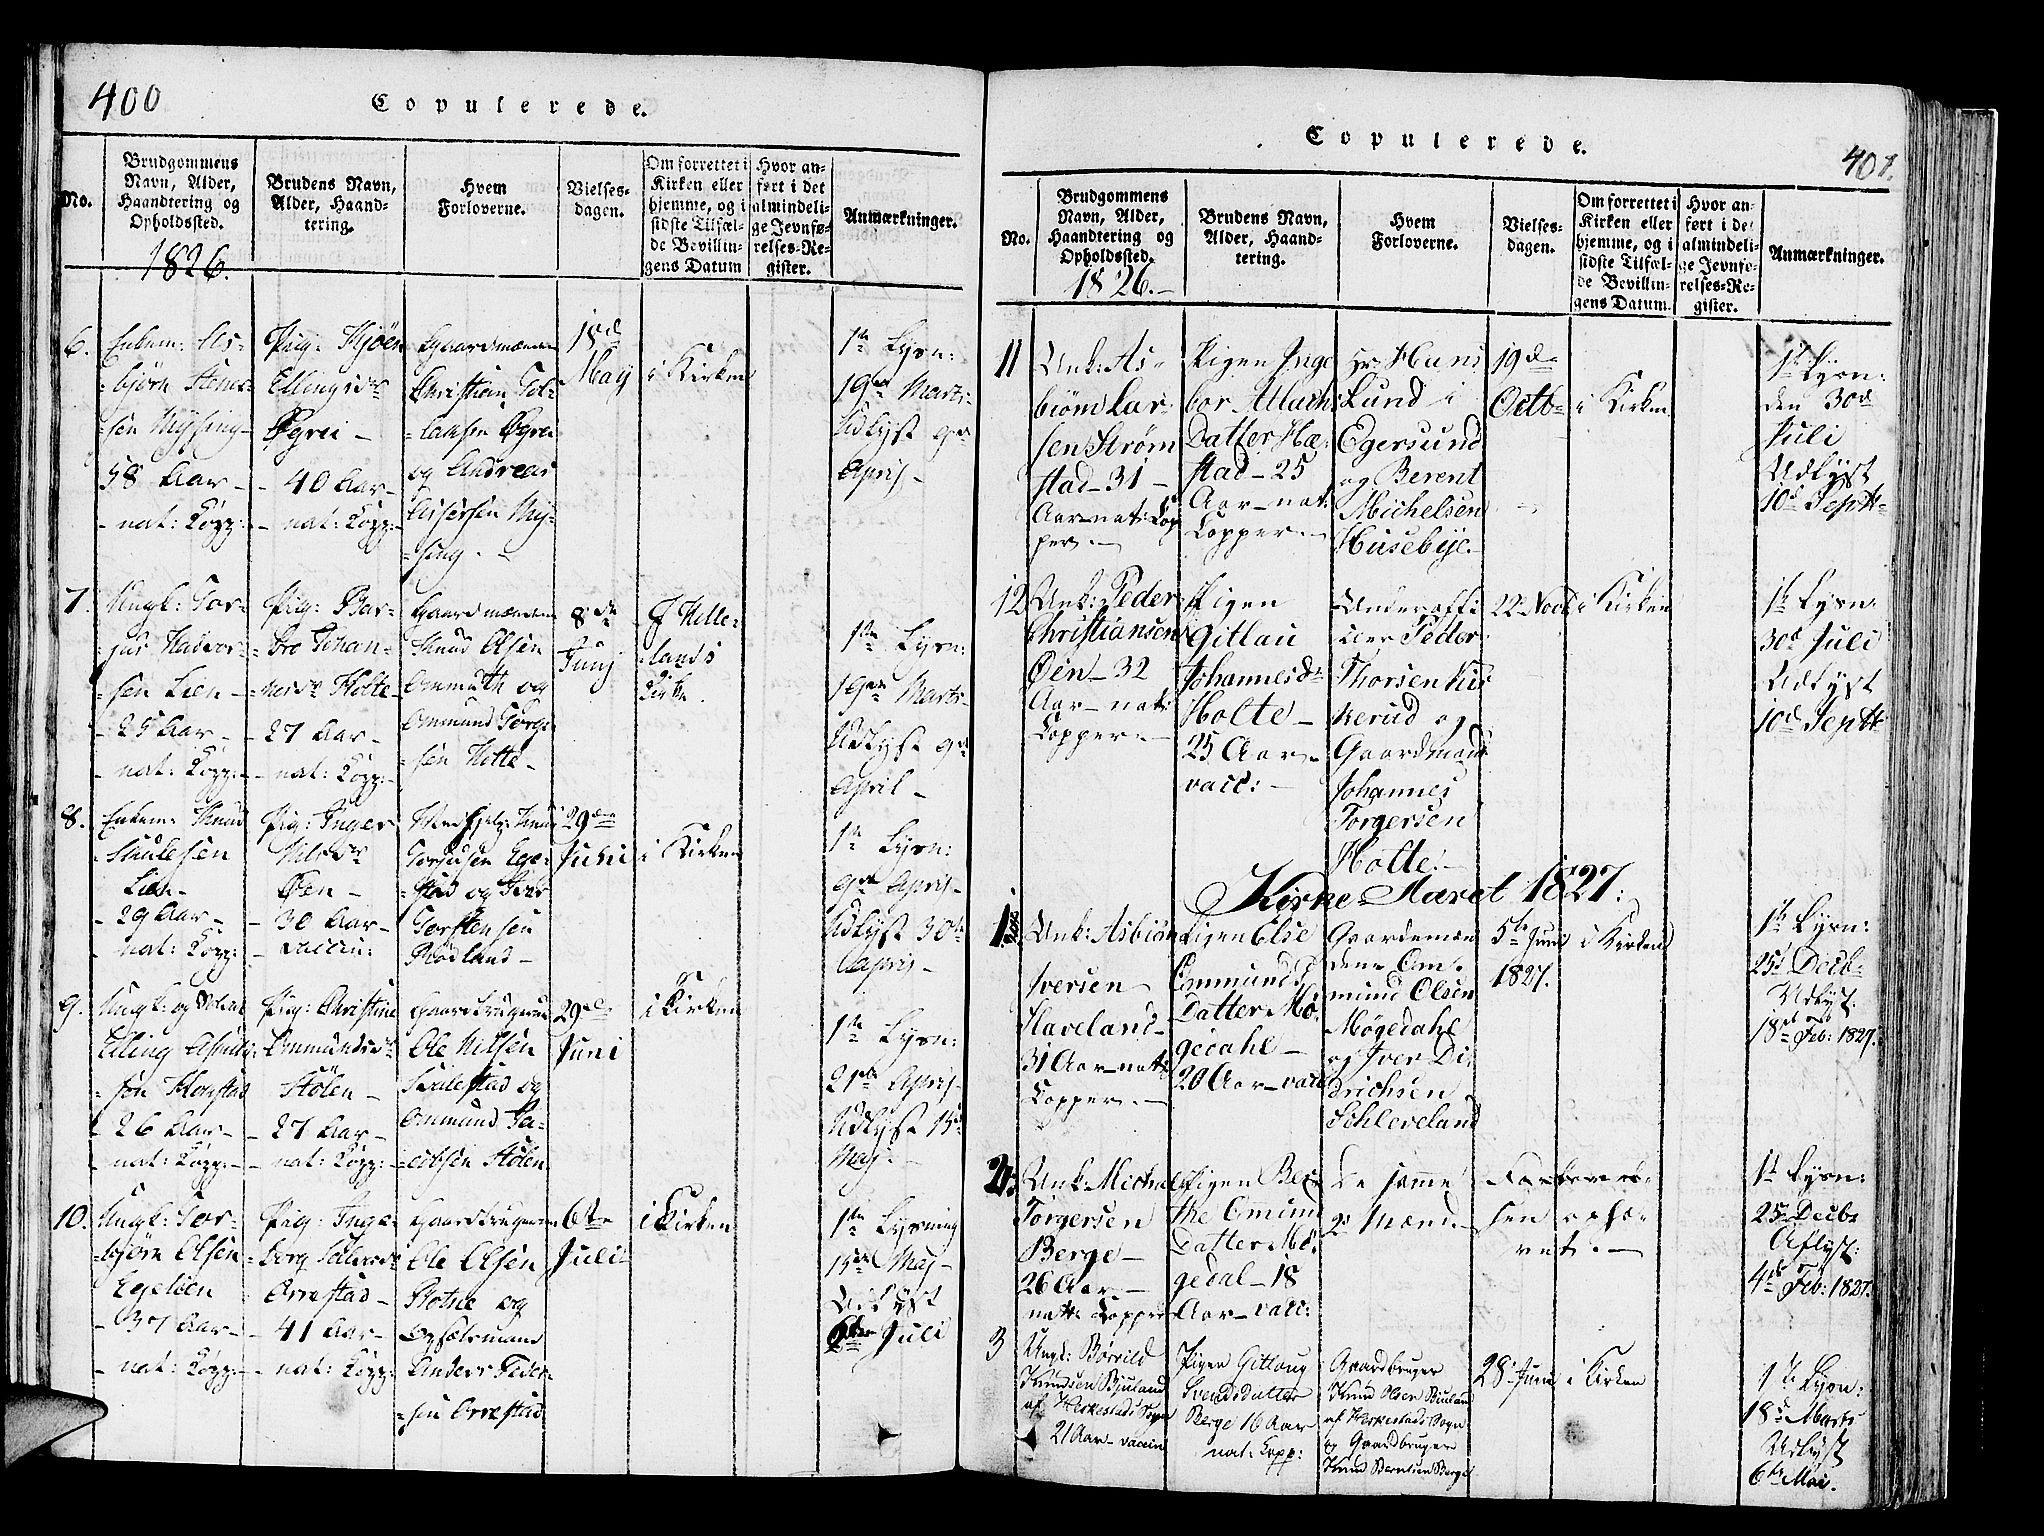 400
Copulerede.
No.
Brudgommens
Navn, Alder,
Haandtering og
Opholdssted.
1826.
Brudens Navn,
Alder, Haand-
tering.
Hvem
Forloverne.
Vielses-
dagen.
Om forrettet i
Kirken eller
hjemme, og i
sidste Tilfæl-
de Bevillin-
gens Datum
Hvor an-
ført i det
almindeli-
ge Jevnfø-
relses-Re-
gister.
Anmærkninger.
6.
Enkem:
-björn
58 Aar-
-nat: Kopp:
Pig:
Ellingsdr
Øgrei -
- 40 Aar-
- nat: Kopp:
Gaardmænden
Christian
Øgrei
og Andreas
18d
Maij
i Kirken
1te Lysn:
19de Marts-
Udlyst 9de
April-
7.
Ungk: Tor-
-sen Lien -
- 25 Aar-
- nat: Kopp:
Pig: Bar-
-bro Johan-
Holte-
- 27 Aar-
- nat: Kopp:
Gaardmænden
Knud Olsen
og
Ommund Torge-
-sen Holte-
8de
Junj
I Helle-
-lands
Kirke
1te Lysn:
19de Marts-
Udlyst 9de
April-
8.
Enkem: Knud
Lien-
- 29 Aar-
nat: Kopp:
Pig: Inger
Øen -
- 30 Aar-
vaccin:
Ege-
-stad og
Torstensen
Rodland-
29de
Juni
i Kirken
1te Lysn:
9de April-
Udlyst 30te
April-
9.
Ungk: og
-sen
- 26 Aar-
- nat: Kopp:-
Pig: Christine
Ommundsdr
Stölen -
- 27 Aar-
- nat: Kopp:-
Gaardbrugerne
Ole Nilsen
og
Ommund Ja-
-cobsen Stölen
29de
Juni
i Kirken
1te Lysn:
21de April-
Udlyst 15de
Maj-
10.
Ungk: Tor-
-björn Olsen
Egelien
- 37 Aar-
- nat: Kopp:
Pig: Inge-
-borg
Orrestad-
- 41 Aar-
- nat: Kopp:
Gaardbrugeren
Ole Olsen
Botne og
Opsidsmand
Anders Peder-
-sen Orrestad
6te
Juli
i Kirken
1te Lysning
15de Maj-
Udlyst
6te Juli
Copulerede.
401.
No.
Brudgommens
Navn, Alder,
Haandtering og
Opholdssted.
1826.-
Brudens Navn,
Alder, Haand-
tering.
Hvem
Forloverne.
Vielses-
dagen.
Om forrettet i
Kirken eller
hjemme, og i
sidste Tilfæl-
de Bevillin-
gens Datum.
Hvor an-
ført i det
almindeli-
ge Jevnfø-
relses-Re-
gister.
Anmærkninger.
11
Unk: As-
biörn Lar-
sen Ström
stad- 31 -
Aar- nat: Kop
per.-
Pigen Inge
bor
Datter Hæ-
stad- 25
Aar- nat:
Kopper.-
Hr. Hans
Lund i
Egersund
og Berent
Michelsen
Husebye.-
19de
Octb-
i Kirken
1te Lysn:
den 30d
Juli
Udlyst
10d Septb-
12
Unk: Peder
Christiansen
Øen- 32
Aar- nat:
Kopper.-
Pigen
Gitlau
Johannesdr
Holte-
25 Aar-
vacc:-
Underoffi
ceer Peder
Thorsen
og
Gaardmand
Johannes
Torgersen
Holte.-
22 Novb
i Kirken
1te Lysn:
30d Juli
Udlyst
10d Septb-
Kirke-Aaret 1827:
1.
Unk: Asbiörn
Iversen-
Slaveland-
31 Aar- nat:
Kopper.-
Pigen Else
Ommunds
Datter Mö-
gedahl-
20 Aar- vacc
Gaardmæn
dene Om-
mund Olsen
Mögedahl
og Iver Di-
drichsen
Schleveland
5te Juni
1827.
i Kirken
1te Lysn:
25d Decb-
Udlyst
18de Feb: 1827.
2.
Unk: Michael
Torgersen
Berge-
26 Aar.-
nat: Kopper
Pigen Ber
the Omund
Datter Mö-
gedal- 18
Aar- vacc:
De samme
2d Mænd.-
ophæ-
vet.-
1te Lysn:
25d Decbr
Aflyst:
4de Feb: 1827.
3
Ungk: Börild
Knudsen Bjuland
af Heskestads Sogn
21 Aar- vaccin
Pigen Gitlaug
Svendsdatter
Berge 16 Aar
nat: Kopp:
Gaardbruger
Knud Olsen Bjuland
af Heskestads Sogn
og Gaardbruger
Knud Berntsen Berge
28d Juni
i Kirken
1te Lysn:
18d Marts
Udlyst
6te Mai.